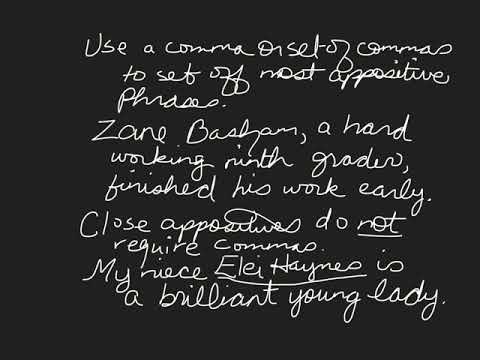 Use a comma or set of commas
to set off most appositive
phrases.
Zane Basham, a hard
working ninth grader,
finished his work early.
Close appositives do not
require commas.
My niece Elei Haynes is
a brilliant young lady.